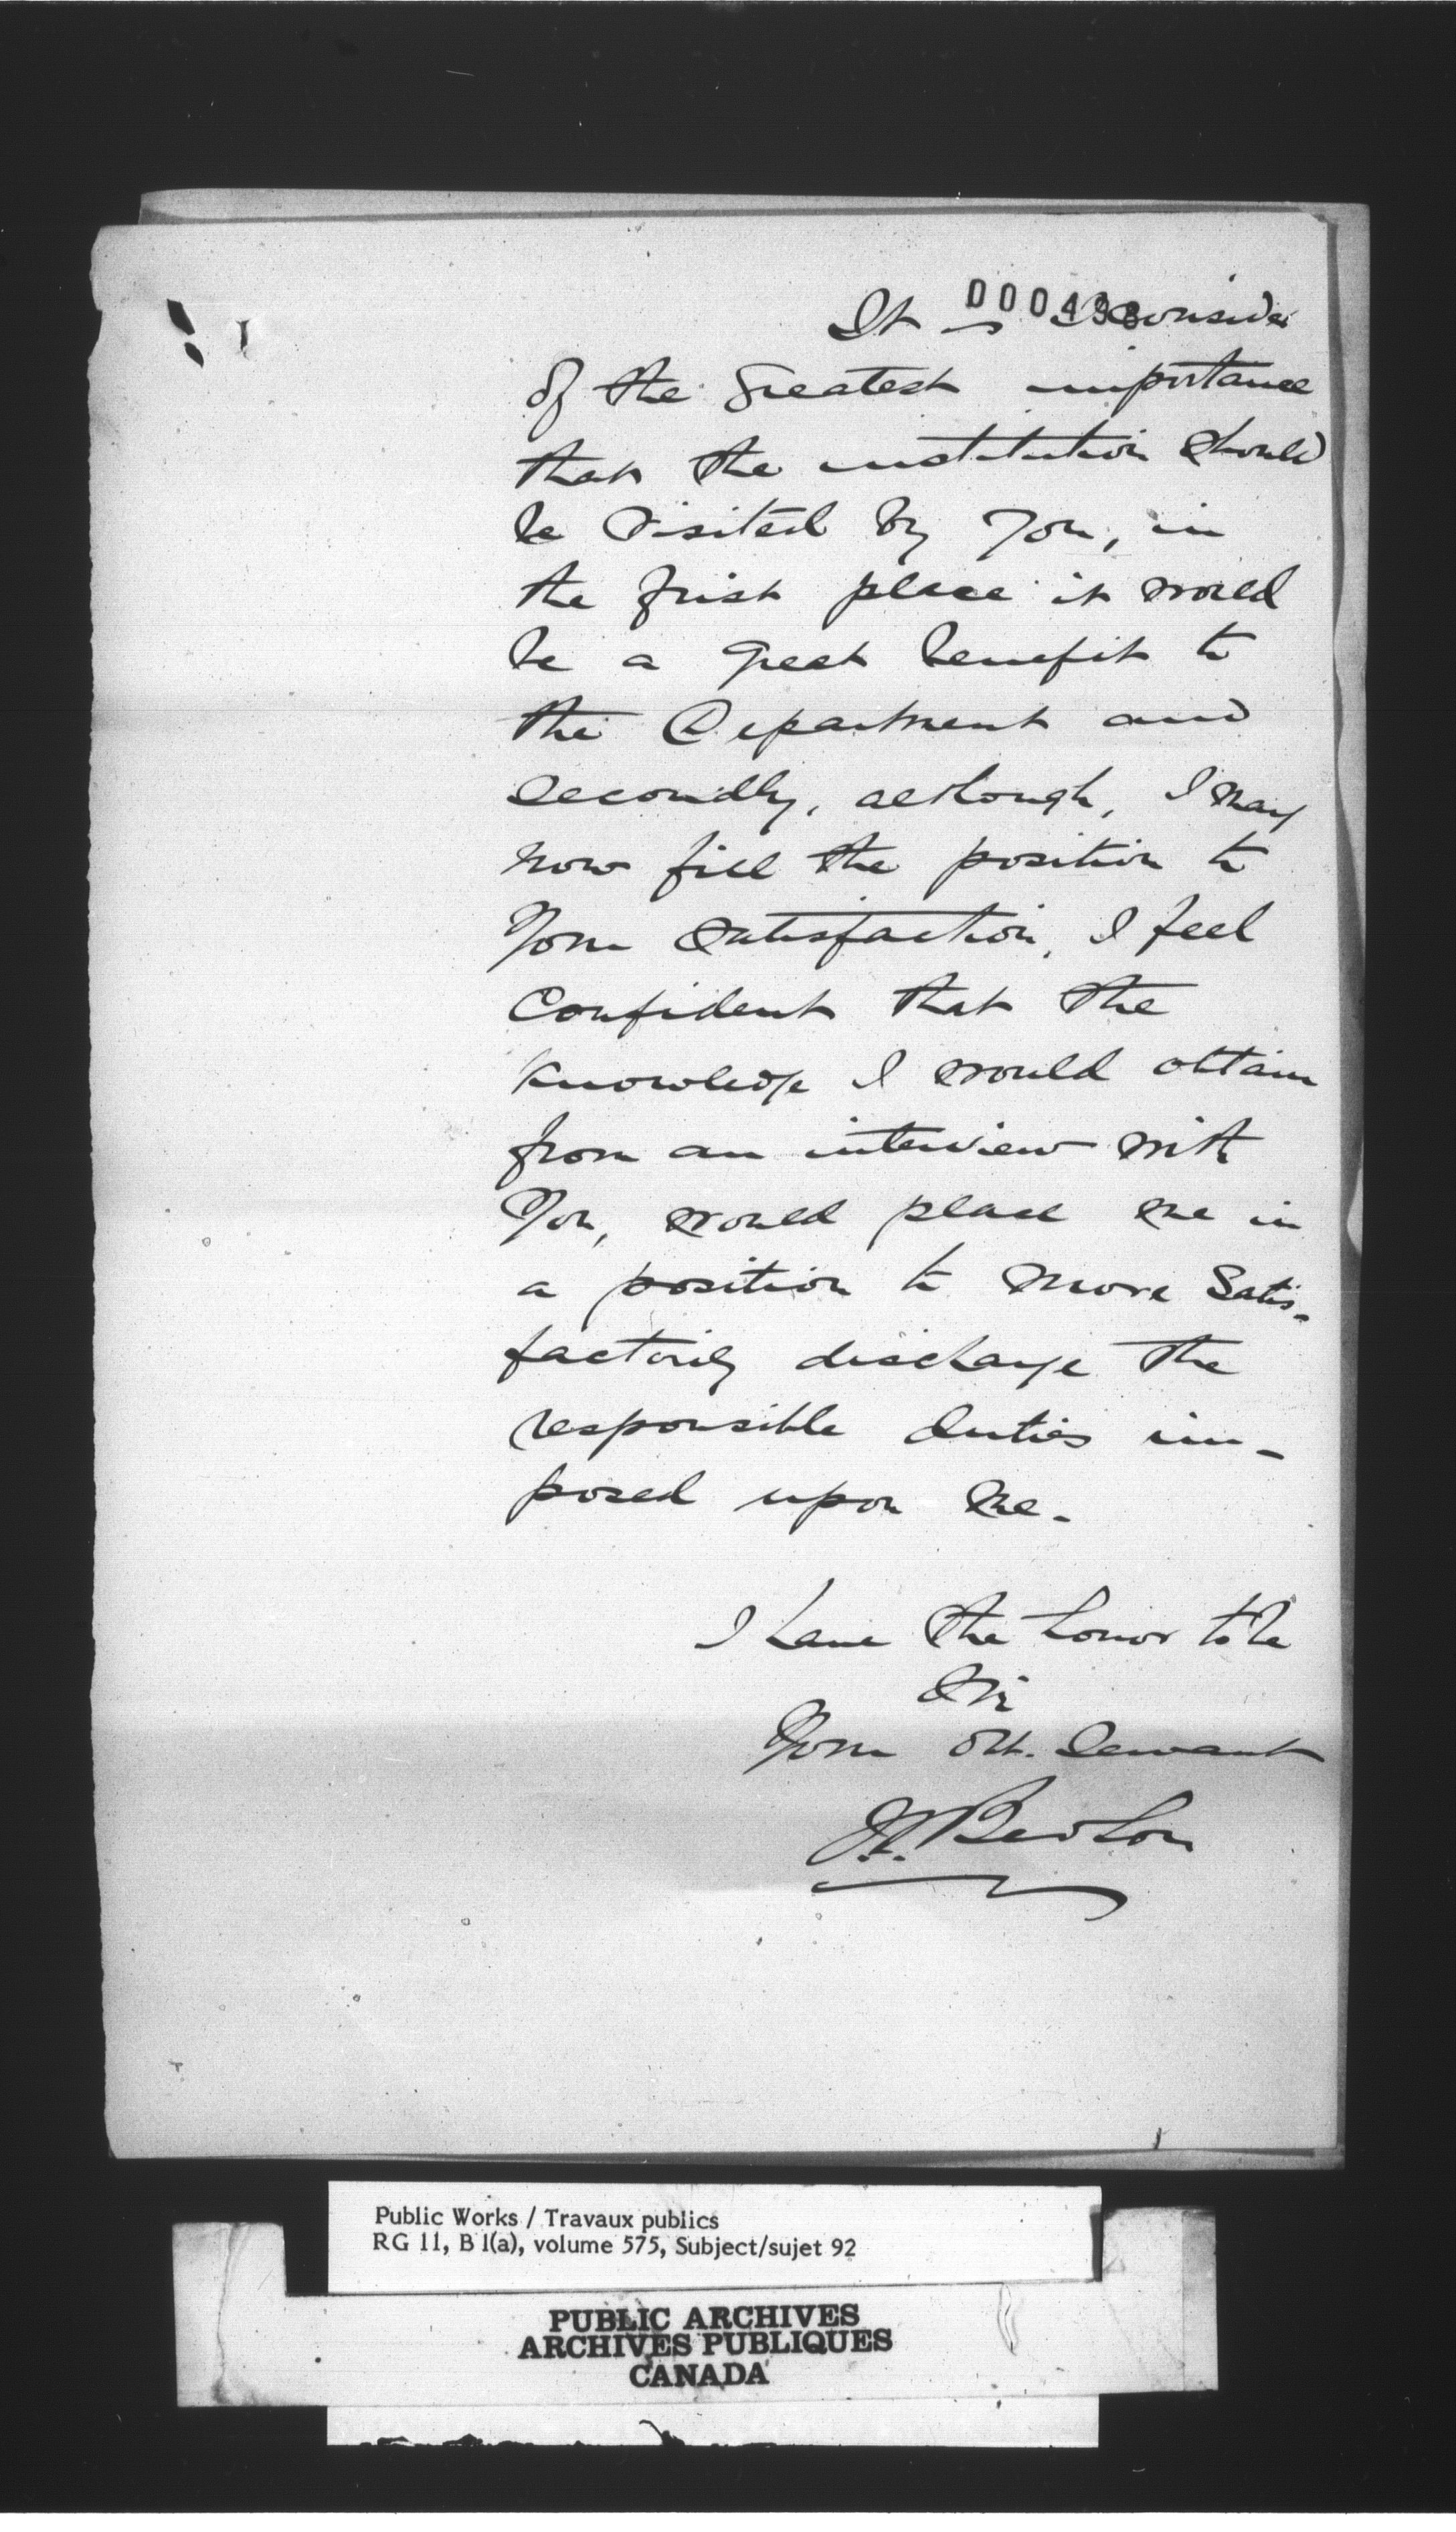 000498
It is I consider
of the greatest importance
that the institution should
be visited by you, in
the first place it would
be a great benefit to
the Department and
secondly, although, I may
now fill the position to
Your satisfaction, I feel
Confident that the
knowledge I would obtain
from an interview with
You, would place me in
a position to more Satis-
factorily discharge the
responsible duties im-
posed upon me.
I have the honor to be
Sir
Your obt. Servant
Public Works / Travaux publics
RG 11, B 1(a), volume 575, Subject/sujet 92
PUBLIC ARCHIVES
ARCHIVES PUBLIQUES
CANADA